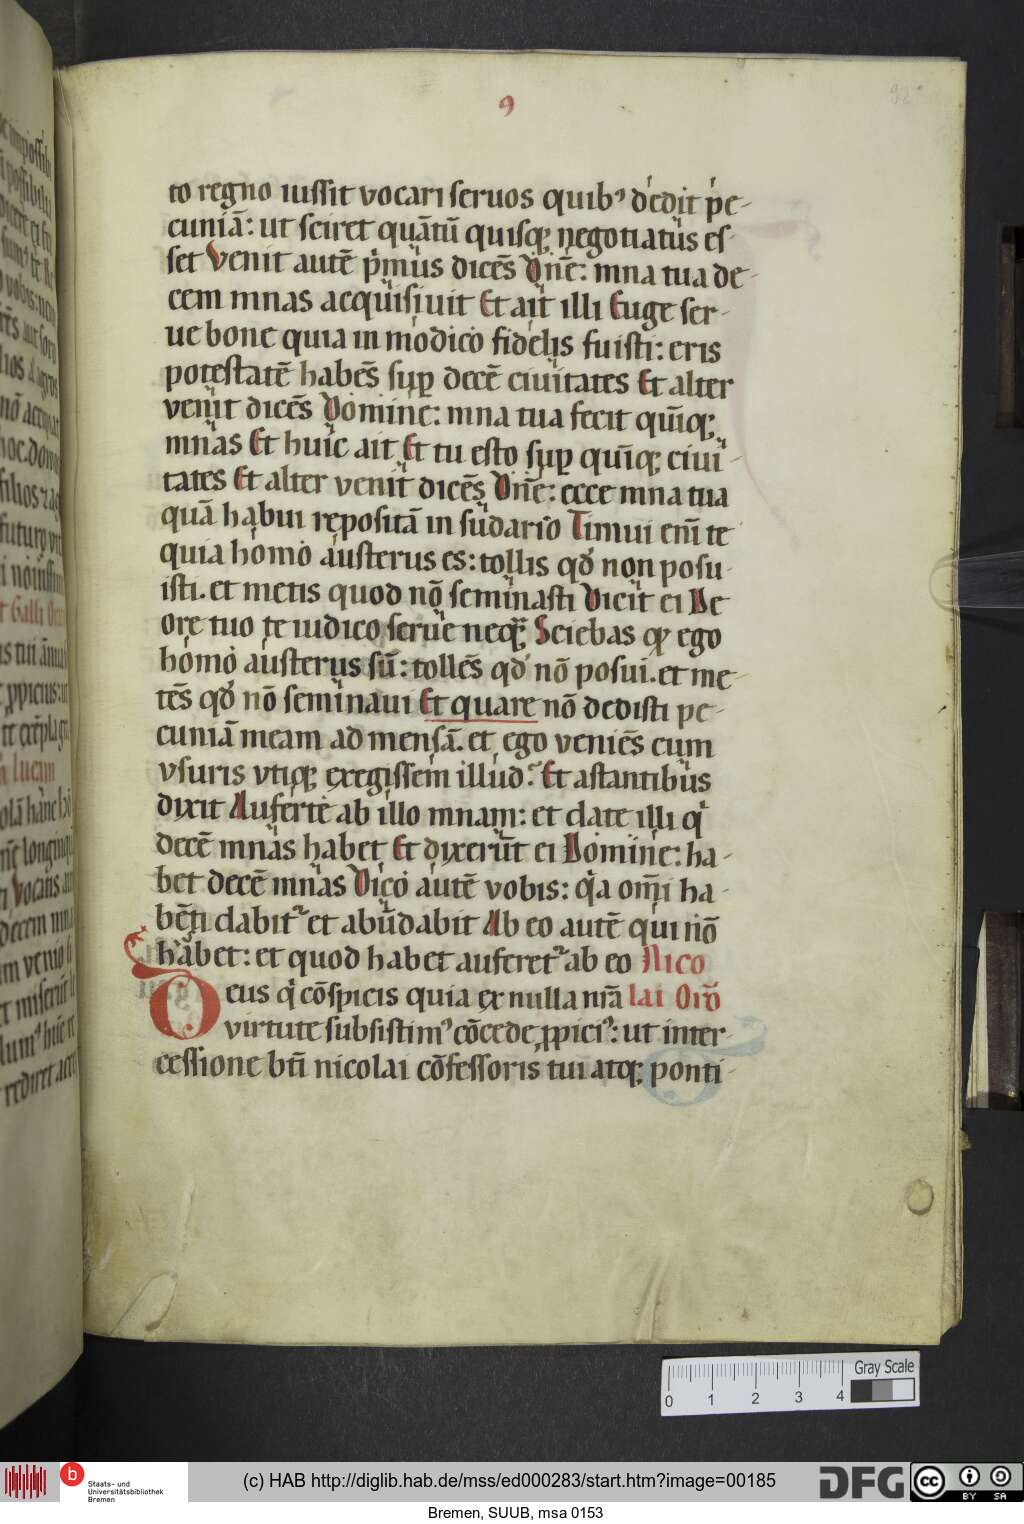 9
92
to regno iussit vocari seruos quibꝰ dedit pe-
cuniā: ut sciret quātū quisqꝫ negotiatus es-
set Venit autē pͥmus dicēs Dn̄e: mna tua de-
cem mnas acquisiuit Et ait illi Euge ser-
ue bone quia in modico fidelis fuisti: eris
potestatē habēs suꝑ decē ciuitates Et alter
venit dicēs Domine: mna tua fecit quīqꝫ
mnas Et huic ait Et tu esto suꝑ quīqꝫ ciui-
tates Et alter venit dicēs Dn̄e: ecce mna tua
quā habui repositā in sudario Timui enī te
quia homo austerus es: tollis qd̕ non posu-
isti. et metis quod nō seminasti Dicit ei De
ore tuo te iudico serue neqͣꝫ Sciebas qꝫ ego
homo austerus sū: tollēs qd̕ nō posui. et me-
tēs qd̕ nō seminaui Et quare nō dedisti pe-
cuniā meam ad mensā. et ego veniēs cum
vsuris vtiqꝫ exegissem illud? Et astantibus
dixit Auferte ab illo mnam: et date illi qͥ
decē mnas habet Et dixerūt ei Domine: ha-
bet decē mnas Dico autē vobis: qͣa om̄i ha-
bēti dabit᷑ et abūdabit Ab eo autē qui nō
habet: et quod habet auferet᷑ ab eo Nico
Deus qͥ cōspicis quia ex nulla nr̄a lai Orō
virtute subsistimꝰ cōcede ꝓpiciꝰ: ut inter-
cessione bt̄i nicolai cōfessoris tui atqꝫ ponti-
Gray Scale
0 1 2 3 4
b Staats- und
Universitätsbibliothek
Bremen
(c) HAB http://diglib.hab.de/mss/ed000283/start.htm?image=00185
DFG
cc BY SA
Bremen, SUUB, msa 0153